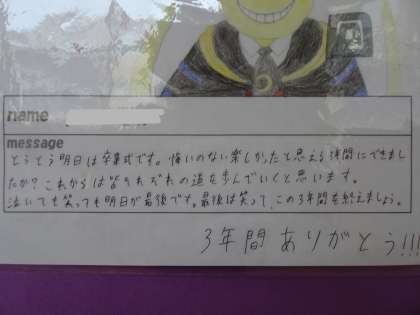 name
message
とうとう明日は卒業式です。悔いのない楽しかったと思える3年間にできまし
たか？これからは皆それぞれの道を歩んでいくと思います。
泣いても笑っても明日が最後です。最後は笑って、この3年間を終えましょう。
3年間ありがとう!!!